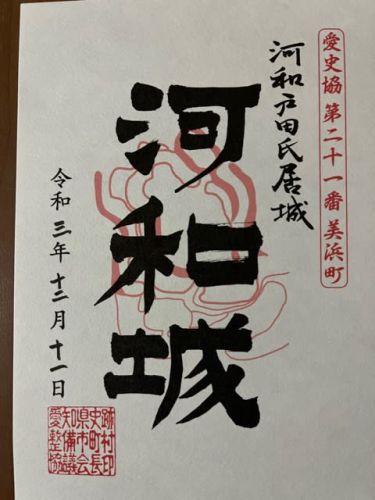 愛史協 第二十一番 美浜町
河和戸田氏居城
河和城
令和三年十二月十一日
愛知県史跡
整備市町村
協議会長印